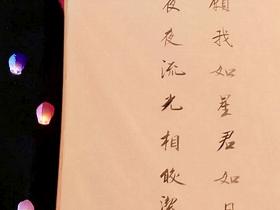 願我如星君如月
夜夜流光相皎潔